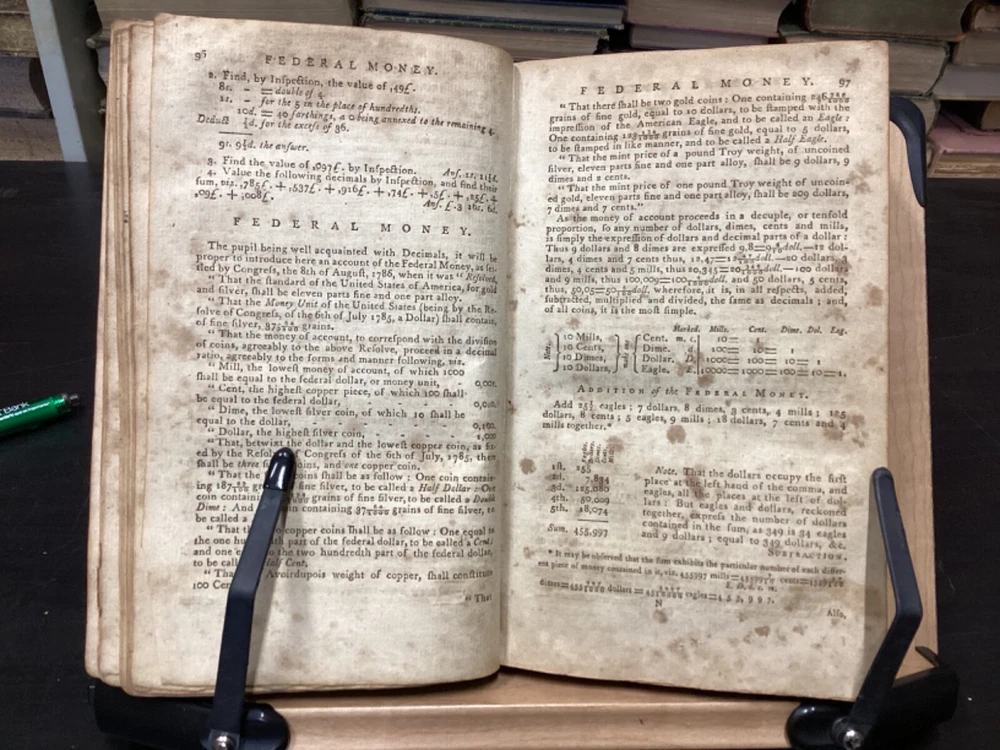 96
FEDERAL MONEY.
2. Find, by Inſpection, the value of ,49£.
8s. - = double of 4.
1s. - for the 5 in the place of hundredths.
10d. = 40 farthings, a 0 being annexed to the remaining 4.
Deduct ½d. for the exceſs of 36.
9s. 9½d. the anſwer.
3. Find the value of ,097£. by Inſpection.
4. Value the following decimals by Inſpection, and find their
ſum, viz. ,785£. + ,537£. + ,916£. + ,74£. + ,5£. + ,25£. +
,09£. + ,008£.
FEDERAL MONEY.
The pupil being well acquainted with Decimals, it will be
proper to introduce here an account of the Federal Money, as ſet-
tled by Congreſs, the 8th of Auguſt, 1786, when it was "Reſolved,
"That the ſtandard of the United States of America, for gold
and ſilver, ſhall be eleven parts fine and one part alloy.
"That the Money Unit of the United States (being by the Re-
ſolve of Congreſs, of the 6th of July 1785, a Dollar) ſhall contain,
of fine ſilver, grains.
"That the money of account, to correſpond with the diviſion
of coins, agreeably to the above Reſolve, proceed in a decimal
ratio, agreeably to the forms and manner following, viz.
"Mill, the loweſt money of account, of which 1000
ſhall be equal to the federal dollar, or money unit, - 0,001.
"Cent, the higheſt copper piece, of which 100 ſhall
be equal to the federal dollar, - - - 0,010.
"Dime, the loweſt ſilver coin, of which 10 ſhall be
equal to the dollar, - - - - 0,100.
"Dollar, the higheſt ſilver coin, - - - 1,000
"That, betwixt the dollar and the loweſt copper coin, as fix-
ed by the Reſol of Congreſs of the 6th of July, 1785, there
ſhall be three oins, and one copper coin.
"That the coins ſhall be as follow; One coin contain-
ing fine ſilver, to be called a Half Dollar: One
coin contain grains of fine ſilver, to be called a Double
Dime: And n containing grains of fine ſilver, to
be called a
"That th copper coins ſhall be as follow: One equal to
the one hu th part of the federal dollar, to be called a Cent:
and one e the two hundredth part of the federal dollar,
to be call Half Cent.
"Tha Avoirdupois weight of copper, ſhall conſtitute
100 Cen
"That
FEDERAL MONEY. 97
"That there ſhall be two gold coins: One containing
grains of fine gold, equal to 10 dollars, to be ſtamped with the
impreſſion of the American Eagle, and to be called an Eagle:
One containing grains of fine gold, equal to 5 dollars,
to be ſtamped in like manner, and to be called a Half Eagle.
"That the mint price of a pound Troy weight, of uncoined
ſilver, eleven parts fine and one part alloy, ſhall be 9 dollars, 9
dimes and 2 cents.
"That the mint price of one pound Troy weight of uncoin-
ed gold, eleven parts fine and one part alloy, ſhall be 209 dollars,
7 dimes and 7 cents."
As the money of account proceeds in a decuple, or tenfold
proportion, ſo any number of dollars, dimes, cents and mills,
is ſimply the expreſſion of dollars and decimal parts of a dollar:
Thus 9 dollars and 8 dimes are expreſſed 9,8=9 8/10 doll.—12 dol-
lars, 4 dimes and 7 cents thus, 12,47=12 47/100 doll.—20 dollars, 3
dimes, 4 cents and 5 mills, thus 20,345=20 345/1000 doll.—100 dollars
and 9 mills, thus 100,009=100 9/1000 doll. and 50 dollars, 5 cents,
thus, 50,05=50 5/100 doll. wherefore, it is, in all reſpects, added,
ſubtracted, multiplied and divided, the ſame as decimals; and,
of all coins, it is the moſt ſimple.
Marked. Mills. Cent. Dime. Dol. Eag.
10 Mills, Cent. m. c. 10= 1
10 Cents, Dime. d. 100= 10= 1
10 Dimes, Dollar. D. 1000= 100= 10= 1
10 Dollars, Eagle. E. 10000= 1000= 100= 10=1.
ADDITION of the FEDERAL MONEY.
Add 25½ eagles; 7 dollars, 8 dimes, 3 cents, 4 mills; 125
dollars, 8 cents; 5 eagles, 9 mills; 18 dollars, 7 cents and 4
mills together.*
1ſt. 255
2d. 7,834
3d. 125,080
4th. 50,009
5th. 18,074
Sum. 455,997
Note. That the dollars occupy the firſt
place at left hand of the comma, and
eagles, all the places at the left of dol-
lars: But eagles and dollars, reckoned
together, expreſs the number of dollars
contained in the ſum, as 349 is 34 eagles
and 9 dollars; equal to 349 dollars, &c.
SUBTRACTION.
* It may be obſerved that the ſum exhibits the particular number of each differ-
ent piece of money contained in it, viz. 455997 mills=
E. D. d. c. m.
4 5 5, 9 9 7.
N
Alſo,